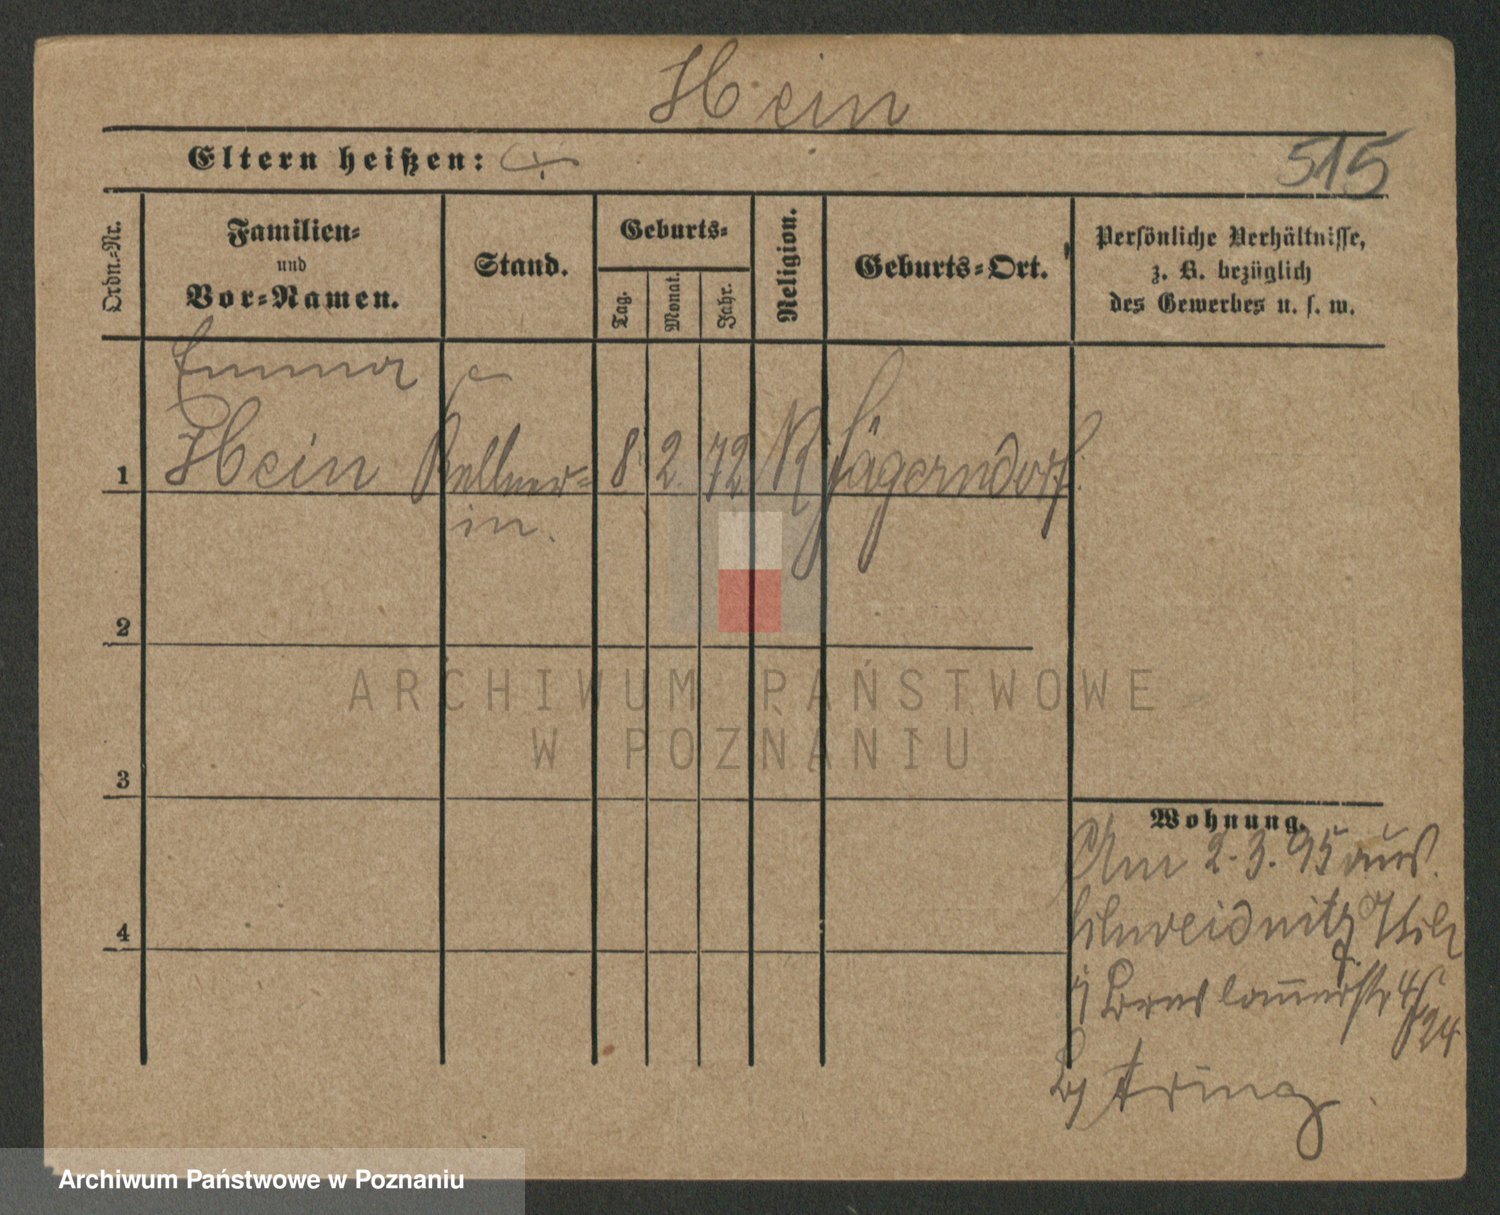 Hein
Eltern heißen:
515
Ordn.-Nr.
Familien-
und
Vor-Namen.
Stand.
Geburts-
Tag.
Monat.
Jahr.
Religion.
Geburts-Ort.
Persönliche Verhältnisse,
z. B. bezüglich
des Gewerbes u. s. w.
Emma
1 Hein Kellner- 8 2. 72 K Jägerndorf.
in.
2
3
4
Wohnung.
Am 2.3.95 aus
Schweidnitz
Breslauerstr
ARCHIWUM PAŃSTWOWE
W POZNANIU
Archiwum Państwowe w Poznaniu